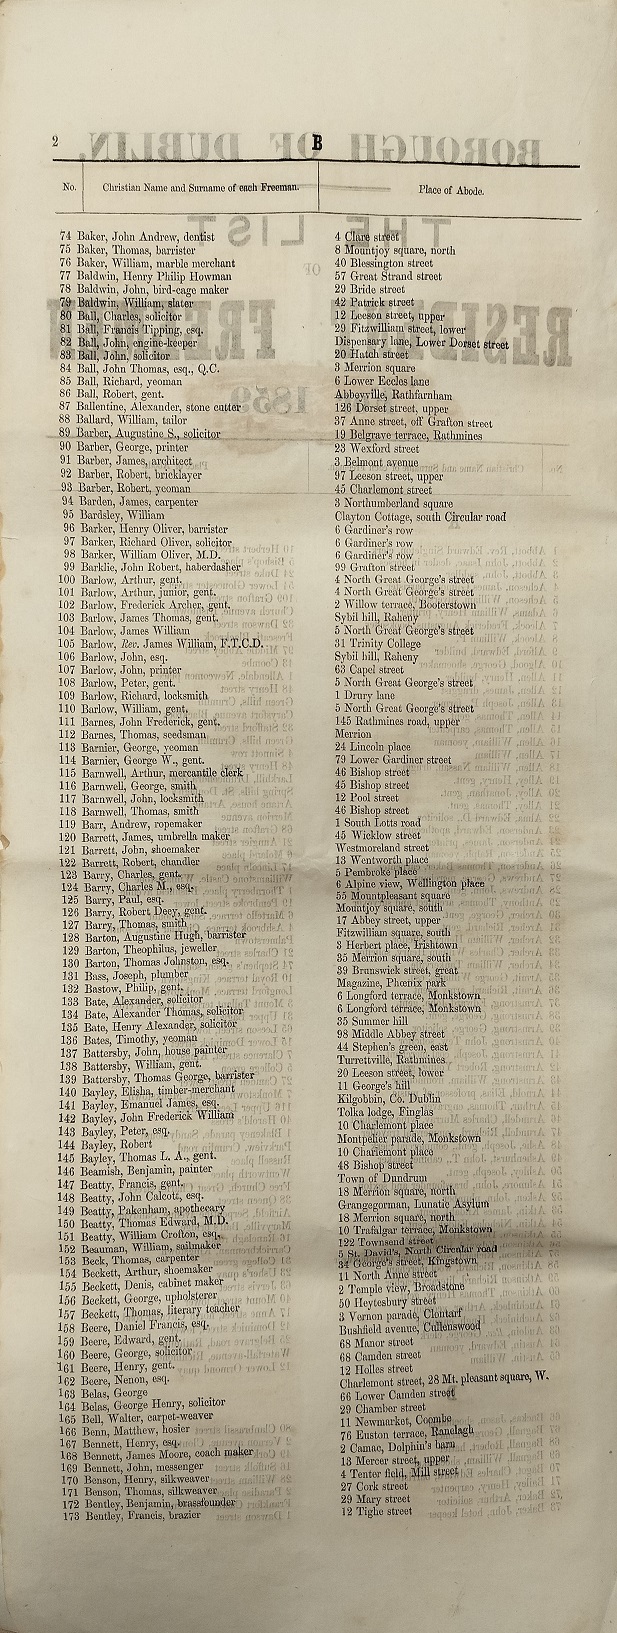 2 B
No. Christian Name and Surname of each Freeman. Place of Abode.
74 Baker, John Andrew, dentist 4 Clare street
75 Baker, Thomas, barrister 8 Mountjoy square, north
76 Baker, William, marble merchant 40 Blessington street
77 Baldwin, Henry Philip Howman 57 Great Strand street
78 Baldwin, John, bird-cage maker 29 Bride street
79 Baldwin, William, slater 42 Patrick street
80 Ball, Charles, solicitor 12 Leeson street, upper
81 Ball, Francis Tipping, esq. 29 Fitzwilliam street, lower
82 Ball, John, engine-keeper Dispensary lane, Lower Dorset street
83 Ball, John, solicitor 20 Hatch street
84 Ball, John Thomas, esq., Q.C. 3 Merrion square
85 Ball, Richard, yeoman 6 Lower Eccles lane
86 Ball, Robert, gent. Abbeyville, Rathfarnham
87 Ballentine, Alexander, stone cutter 126 Dorset street, upper
88 Ballard, William, tailor 37 Anne street, off Grafton street
89 Barber, Augustine S., solicitor 19 Belgrave terrace, Rathmines
90 Barber, George, printer 23 Wexford street
91 Barber, James, architect 3 Belmont avenue
92 Barber, Robert, bricklayer 97 Leeson street, upper
93 Barber, Robert, yeoman 45 Charlemont street
94 Barden, James, carpenter 3 Northumberland square
95 Bardsley, William Clayton Cottage, south Circular road
96 Barker, Henry Oliver, barrister 6 Gardiner's row
97 Barker, Richard Oliver, solicitor 6 Gardiner's row
98 Barker, William Oliver, M.D. 6 Gardiner's row
99 Barklie, John Robert, haberdasher 99 Grafton street
100 Barlow, Arthur, gent. 4 North Great George's street
101 Barlow, Arthur, junior, gent. 4 North Great George's street
102 Barlow, Frederick Archer, gent. 2 Willow terrace, Booterstown
103 Barlow, James Thomas, gent. Sybil hill, Raheny
104 Barlow, James William 5 North Great George's street
105 Barlow, Rev. James William, F.T.C.D. 31 Trinity College
106 Barlow, John, esq. Sybil hill, Raheny
107 Barlow, John, printer 63 Capel street
108 Barlow, Peter, gent. 5 North Great George's street
109 Barlow, Richard, locksmith 1 Drury lane
110 Barlow, William, gent. 5 North Great George's street
111 Barnes, John Frederick, gent. 145 Rathmines road, upper
112 Barnes, Thomas, seedsman Merrion
113 Barnier, George, yeoman 24 Lincoln place
114 Barnier, George W., gent. 79 Lower Gardiner street
115 Barnwell, Arthur, mercantile clerk 46 Bishop street
116 Barnwell, George, smith 45 Bishop street
117 Barnwell, John, locksmith 12 Pool street
118 Barnwell, Thomas, smith 46 Bishop street
119 Barr, Andrew, ropemaker 1 South Lotts road
120 Barrett, James, umbrella maker 45 Wicklow street
121 Barrett, John, shoemaker Westmoreland street
122 Barrett, Robert, chandler 13 Wentworth place
123 Barry, Charles, gent. 5 Pembroke place
124 Barry, Charles M., esq. 6 Alpine view, Wellington place
125 Barry, Paul, esq. 55 Mountpleasant square
126 Barry, Robert Deey, gent. Mountjoy square, south
127 Barry, Thomas, smith 17 Abbey street, upper
128 Barton, Augustine Hugh, barrister Fitzwilliam square, south
129 Barton, Theophilus, jeweller 3 Herbert place, Irishtown
130 Barton, Thomas Johnston, esq. 35 Merrion square, south
131 Bass, Joseph, plumber 39 Brunswick street, great
132 Bastow, Philip, gent. Magazine, Phœnix park
133 Bate, Alexander, solicitor 6 Longford terrace, Monkstown
134 Bate, Alexander Thomas, solicitor 6 Longford terrace, Monkstown
135 Bate, Henry Alexander, solicitor 35 Summer hill
136 Bates, Timothy, yeoman 98 Middle Abbey street
137 Battersby, John, house painter 44 Stephen's green, east
138 Battersby, William, gent. Turrettville, Rathmines
139 Battersby, Thomas George, barrister 20 Leeson street, lower
140 Bayley, Elisha, timber-merchant 11 George's hill
141 Bayley, Emanuel James, esq. Kilgobbin, Co. Dublin
142 Bayley, John Frederick William Tolka lodge, Finglas
143 Bayley, Peter, esq. 10 Charlemont place
144 Bayley, Robert Montpelier parade, Monkstown
145 Bayley, Thomas L. A., gent. 10 Charlemont place
146 Beamish, Benjamin, painter 48 Bishop street
147 Beatty, Francis, gent. Town of Dundrum
148 Beatty, John Calcott, esq. 18 Merrion square, north
149 Beatty, Pakenham, apothecary Grangegorman, Lunatic Asylum
150 Beatty, Thomas Edward, M.D. 18 Merrion square, north
151 Beatty, William Crofton, esq. 10 Trafalgar terrace, Monkstown
152 Beauman, William, sailmaker 122 Townsend street
153 Beck, Thomas, carpenter 5 St. David's, North Circular road
154 Beckett, Arthur, shoemaker 34 George's street, Kingstown
155 Beckett, Denis, cabinet maker 11 North Anne street
156 Beckett, George, upholsterer 2 Temple view, Broadstone
157 Beckett, Thomas, literary teacher 50 Heytesbury street
158 Beere, Daniel Francis, esq. 3 Vernon parade, Clontarf
159 Beere, Edward, gent. Bushfield avenue, Cullenswood
160 Beere, George, solicitor 68 Manor street
161 Beere, Henry, gent. 68 Camden street
162 Beere, Nenon, esq. 12 Holles street
163 Belas, George Charlemont street, 28 Mt. pleasant square, W.
164 Belas, George Henry, solicitor 66 Lower Camden street
165 Bell, Walter, carpet-weaver 29 Chamber street
166 Benn, Matthew, hosier 11 Newmarket, Coombe
167 Bennett, Henry, esq. 76 Euston terrace, Ranelagh
168 Bennett, James Moore, coach maker 2 Camac, Dolphin's barn
169 Bennett, John, messenger 13 Mercer street, upper
170 Benson, Henry, silkweaver 4 Tenter field, Mill street
171 Benson, Thomas, silkweaver 27 Cork street
172 Bentley, Benjamin, brassfounder 29 Mary street
173 Bentley, Francis, brazier 12 Tighe street